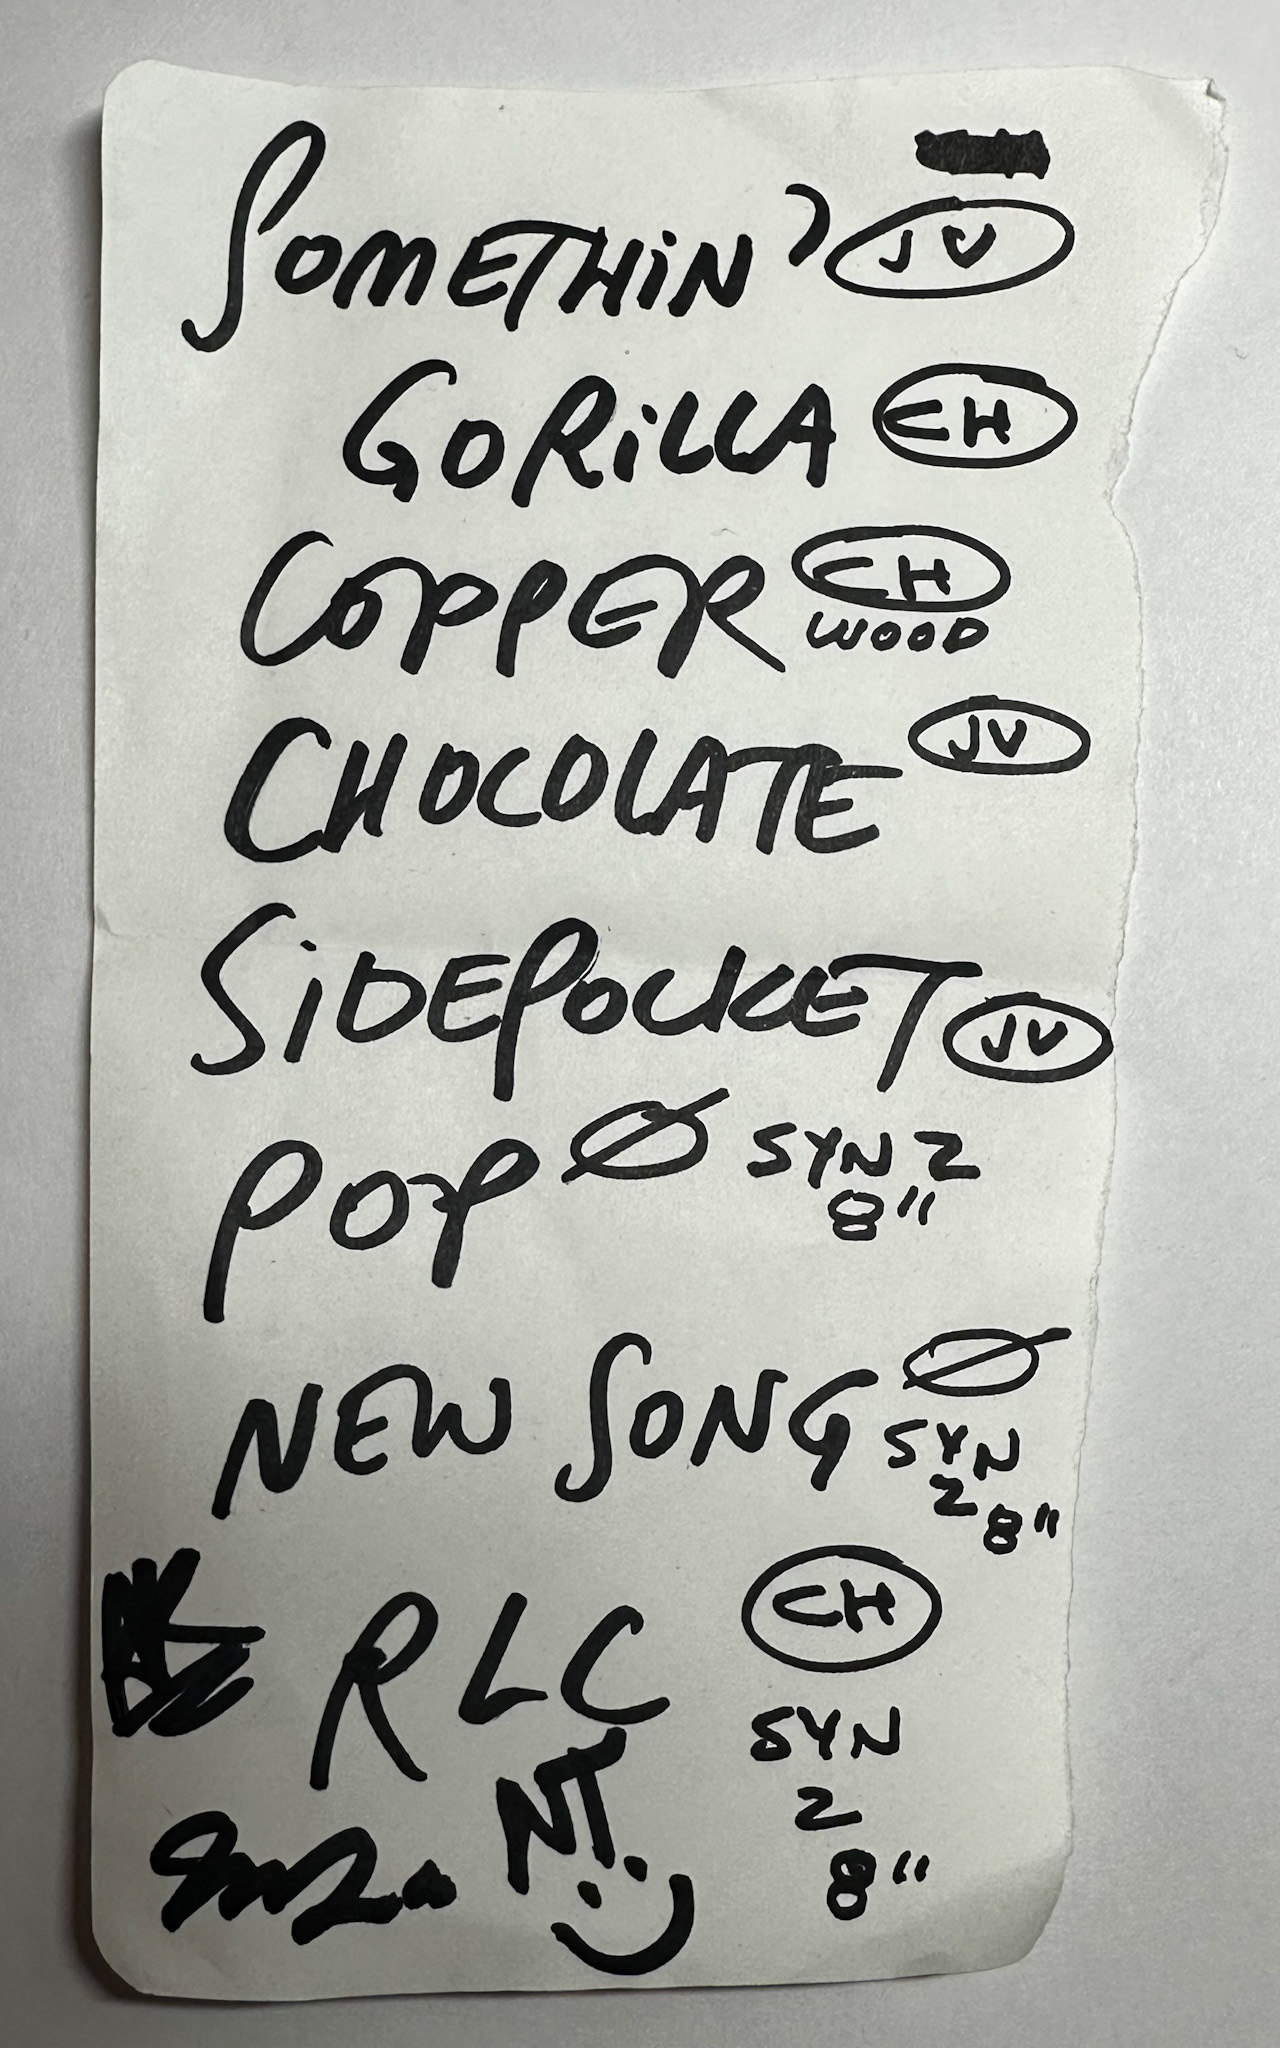 SOMETHIN' JV
GORILLA CH
COPPER CH
WOOD
CHOCOLATE JV
SIDEPOCKET JV
POP Ø SYN 2
8"
NEW SONG Ø
SYN
2
8"
RLC CH
SYN
NT.
2
8"